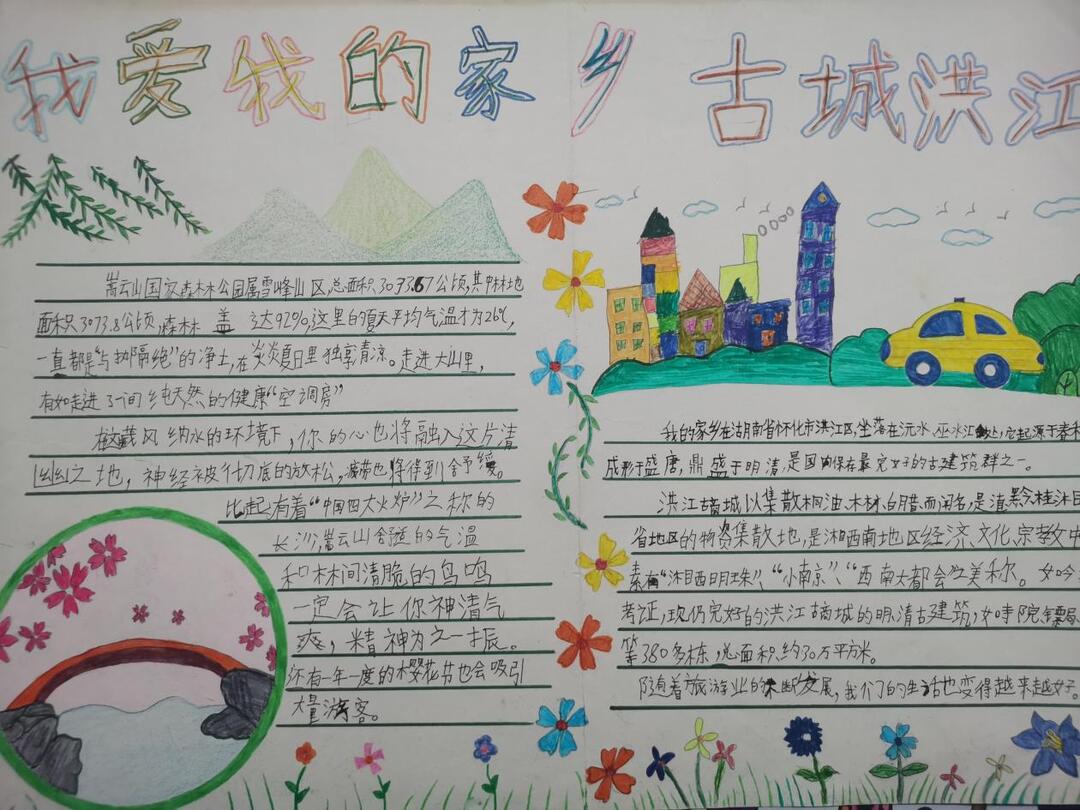 我爱我的家乡
嵩云山国家森林公园属雪峰山区,总面积3093.67公顷,其中林地
面积3073.8公顷,森林 盖 达92%,这里的夏天平均气温才为26℃,
一直都是“与世隔绝”的净土,在炎炎夏日里独享清凉。走进大山里,
有如走进了一间纯天然的健康“空调房”
在藏风纳水的环境下,你的心也将融入这片清
幽之地,神经被彻底的放松,疲劳也将得到舒缓。
比起有着“中国四大火炉”之称的
长沙,嵩云山舒适的气温
和林间清脆的鸟鸣
一定会让你神清气
爽,精神为之一振。
还有一年一度的樱花节也会吸引
大量游客。
古城洪江
我的家乡在湖南省怀化市洪江区,坐落在沅水、巫水江畔,它起源于春秋
成形于盛唐,鼎盛于明清,是国内保存最完好的古建筑群之一。
洪江古城以集散桐油、木材、白腊而闻名,是滇黔桂湘
省地区的物资集散地,是湘西南地区经济、文化、宗教中
素有“湘西明珠”、“小南京”、“西南大都会”美称。如今
考证,现仍完好的洪江古城的明清古建筑,如寺院、镖局
等380多栋,总面积约30万平方米。
随着旅游业的不断发展,我们的生活也变得越来越好。